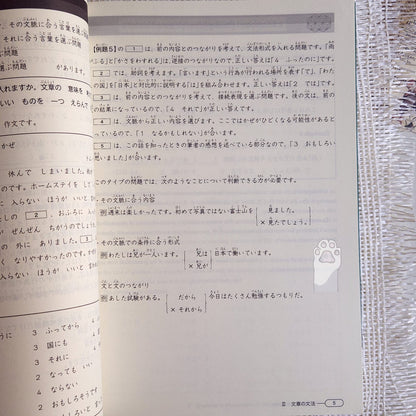 、その文脈に合う言葉を選ぶ問題
それに合う言葉を選ぶ問題
問題
選ぶ問題 があります。
入れますか。文章の 意味を
いい ものを 一つ えらんで
作文です。
かぜ
休んで しまいました。
のです。ホームステイを して
に 入らない ほうが いいと
の 2 、おふろに
が ぜんぜん ちがうのでしょう
の 外に あります。 3
く なりやすかったです。
入らない ほうが いいと
3 ふってから 4
3 国にも
3 それに 4
2 なっても
4 ならない
2 おもしろそうです
【例題5】の 1 は、前の内容とのつながりを考えて、文法形式を入れる問題です。「雨
がふる」と「かさをわすれる」は、逆接のつながりなので、正しい答えは「4 ふったのに」です。
2 では、助詞を考えます。「言います」という行為が行われる場所を表す「で」、「わたし
の国」を「日本」と対比的に説明する「は」を組み合わせます。正しい答えは「2 では」です。
3 は、前の内容とのつながりを考えて、接続表現を選ぶ問題です。後の文は、前の
の結果になっているので、「4 それで」が正しい答えです。
4 は、文脈から正しい内容を選びます。ここではかぜがひどくなる可能性があると
べているので、「1 なるかもしれない」が合います。
5 は、この話を知ったときの筆者の感想を述べている部分なので、「3 おもしろい
いました」が合います。
このタイプの問題では、次のようなことについて判断できる力が必要です。
その文脈に合う内容
例 週末は楽しかったです。初めて写真ではない富士山を 見ました。
× 見たでしょう。
その文脈での条件に合う形式
例 わたしは兄が一人います。 兄は 日本で働いています。
× 兄が
文と文のつながり
例 あした試験がある。 だから 今日はたくさん勉強するつもりだ。
× それから
Ⅲ 文章の文法 5